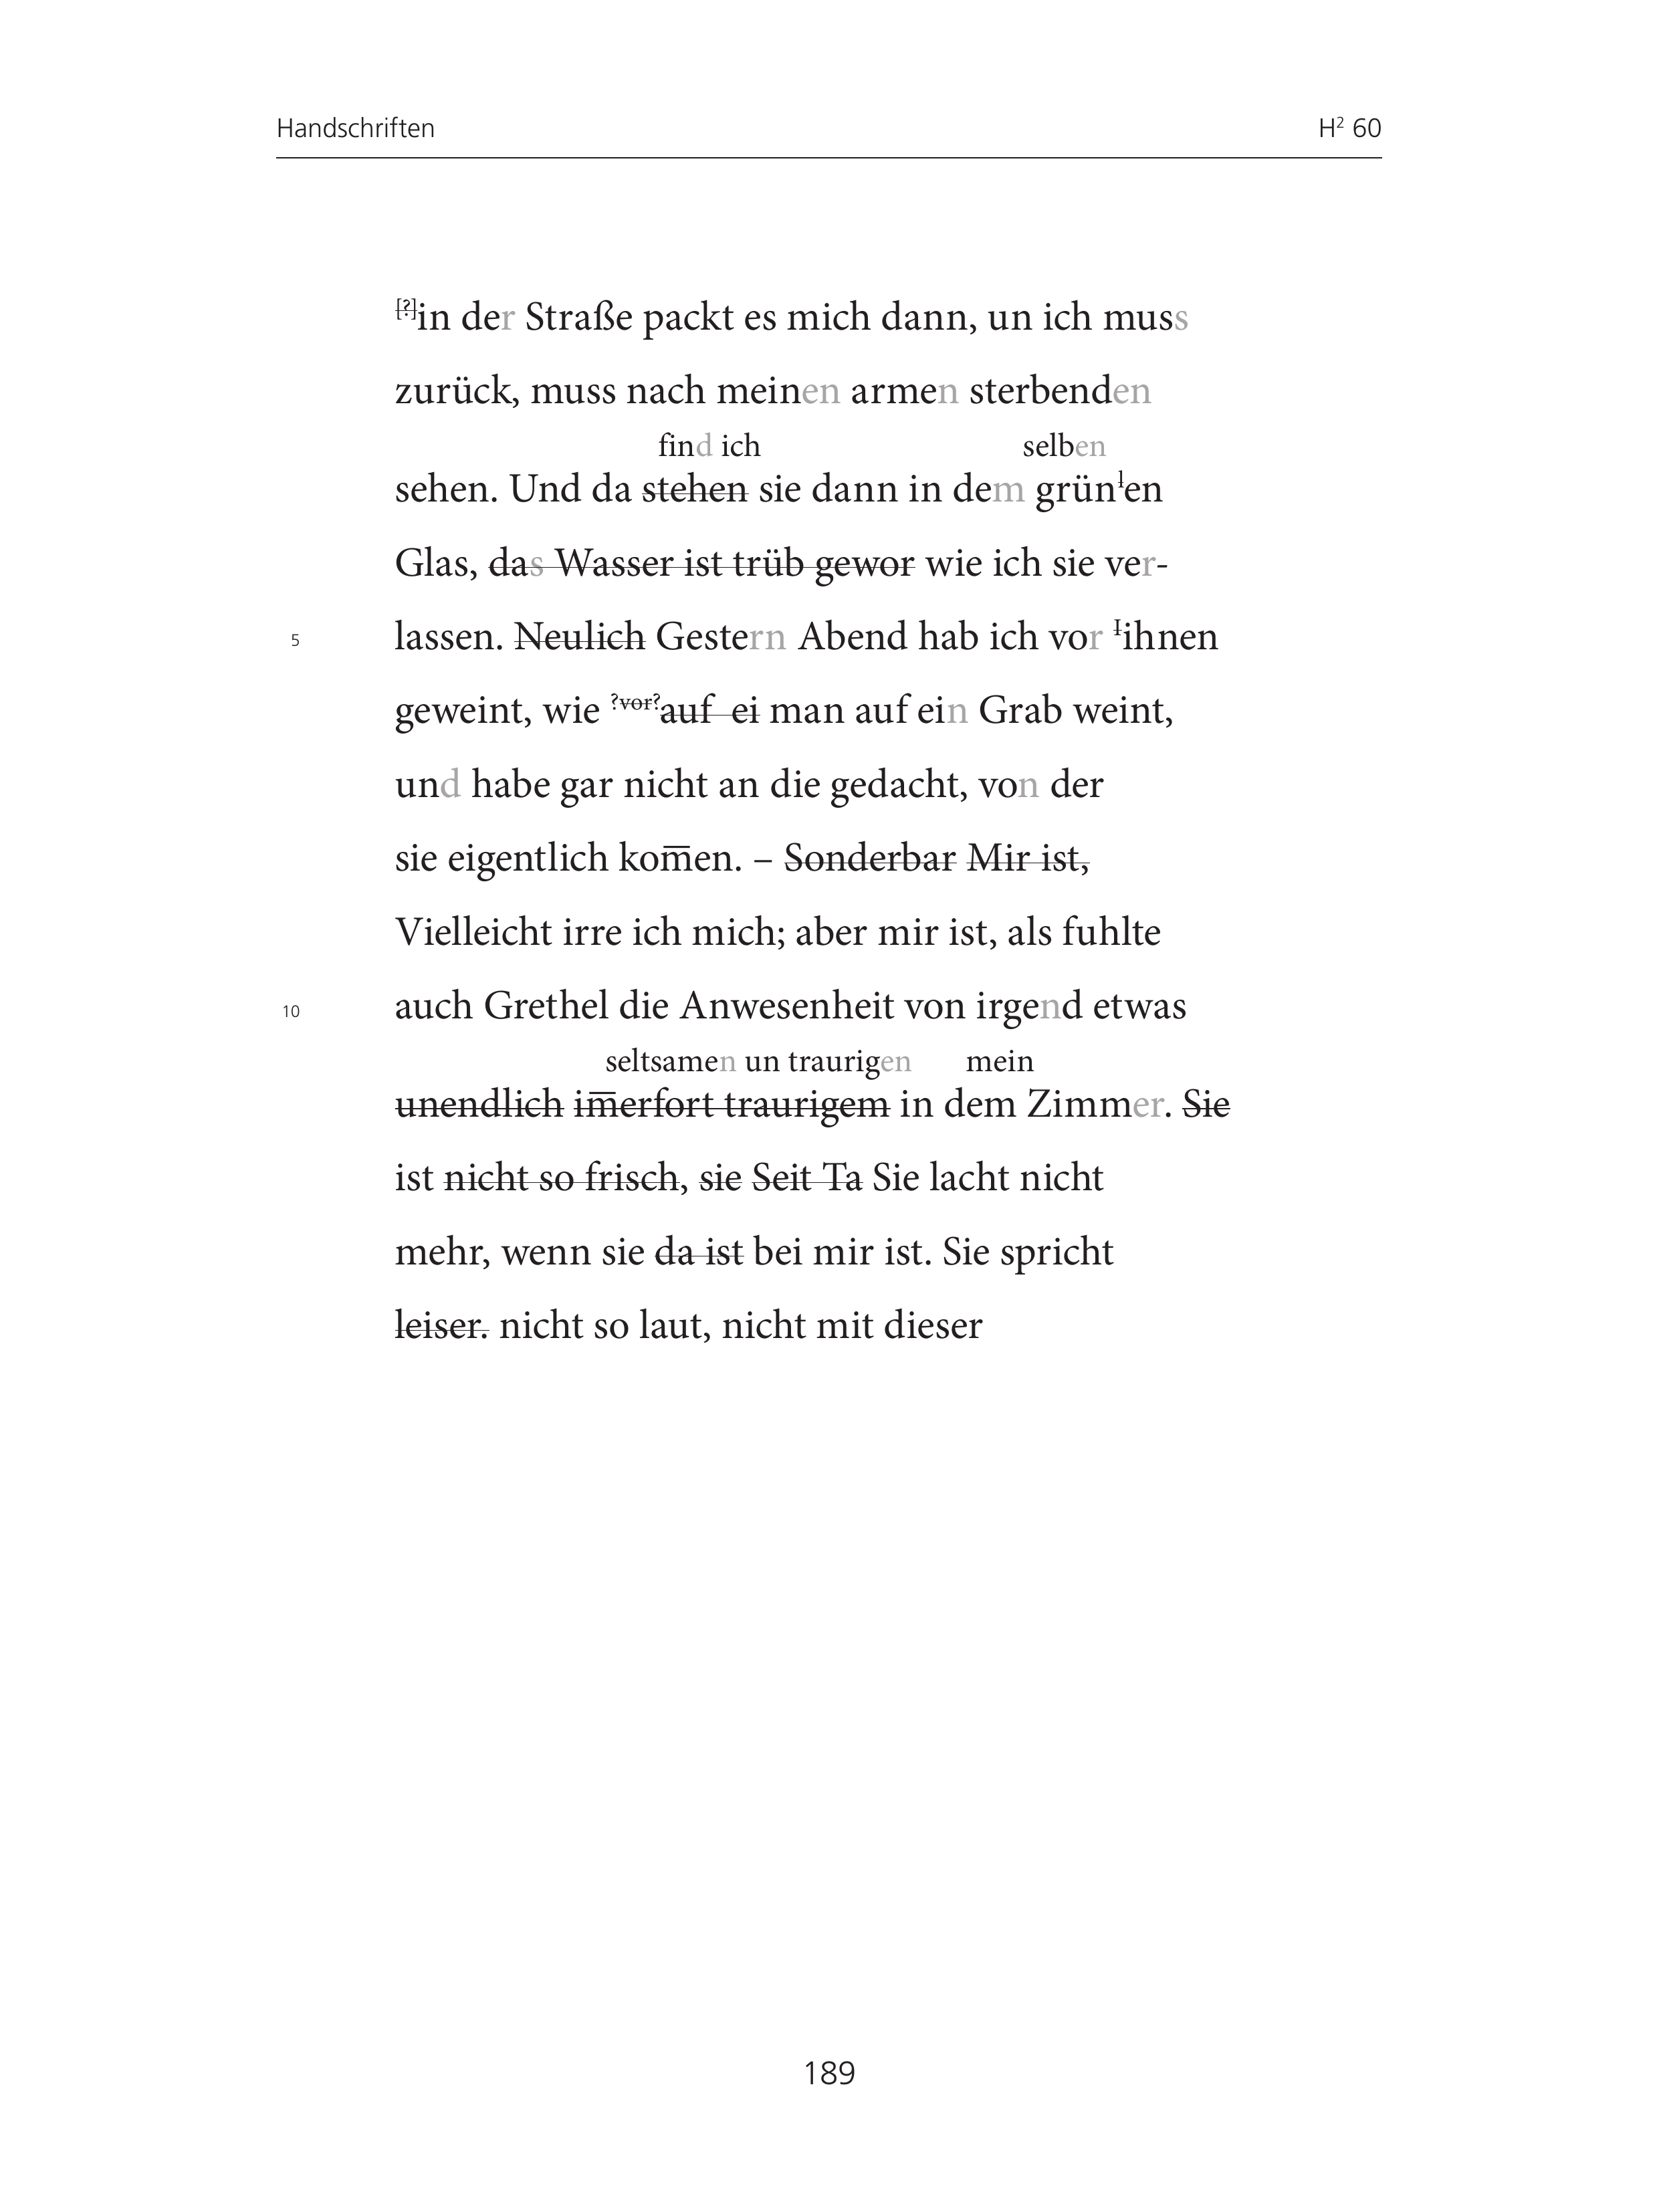 Handschriften H² 60
[?]in der Straße packt es mich dann, un ich muss
zurück, muss nach meinen armen sterbenden
find ich selben
sehen. Und da stehen sie dann in dem grünlen
Glas, das Wasser ist trüb gewor wie ich sie ver-
5 lassen. Neulich Gestern Abend hab ich vor Iihnen
geweint, wie ?vor?auf ei man auf ein Grab weint,
und habe gar nicht an die gedacht, von der
sie eigentlich kom̅en. – Sonderbar Mir ist,
Vielleicht irre ich mich; aber mir ist, als fuhlte
10 auch Grethel die Anwesenheit von irgend etwas
seltsamen un traurigen mein
unendlich im̅erfort traurigem in dem Zimmer. Sie
ist nicht so frisch, sie Seit Ta Sie lacht nicht
mehr, wenn sie da ist bei mir ist. Sie spricht
leiser. nicht so laut, nicht mit dieser
189